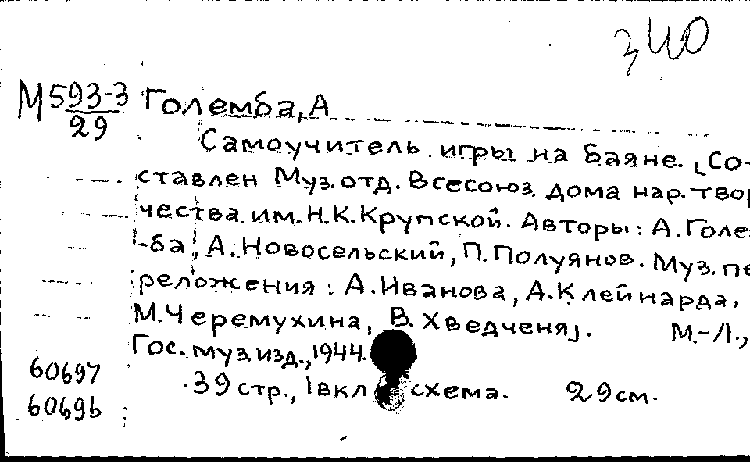 340
М593-3
29
Големба, А
Самоучитель игры на баяне. [Со-
ставлен Муз. отд. Всесоюз. дома нар. твор
чества им. Н.К. Крупской. Авторы: А. Голе
-ба, А. Новосельский, П. Полуянов. Муз. пе
реложения: А. Иванова, А. Клейнарда,
М. Черемухина, В. Хведченя].  М.-Л.,
Гос. муз. изд., 1944.
39 стр., 1 вкл схема. 29 см.
60697
60696